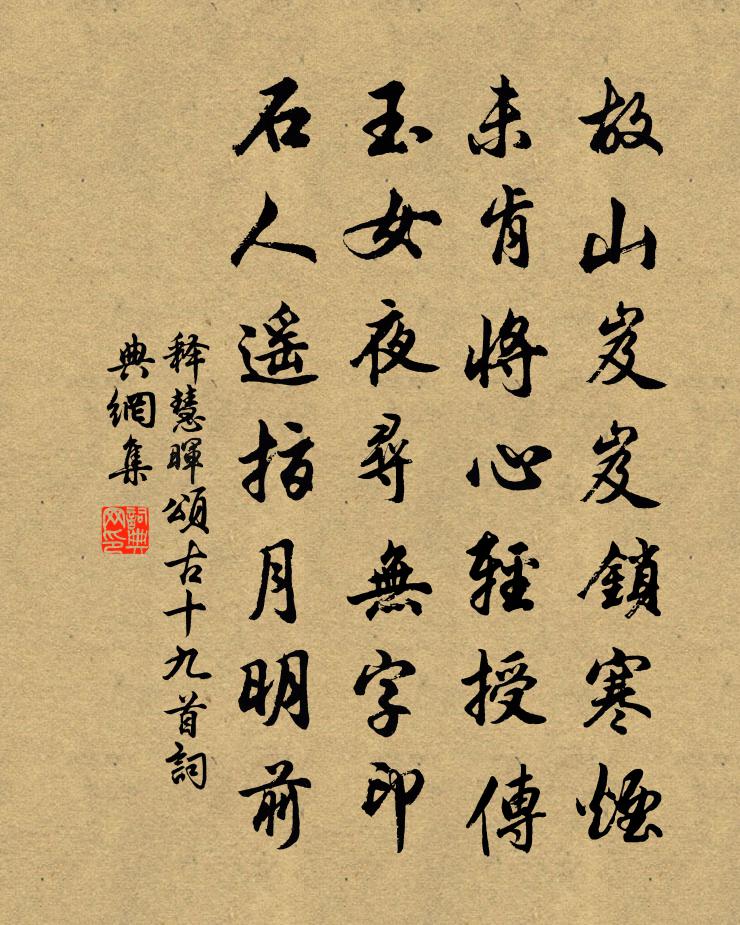 故山岌岌鎖寒煙
未肯將心輕授傳
玉女夜尋無字印
石人遥指月明前
釋慧暉頌古十九首詞
典網集
詞典网印